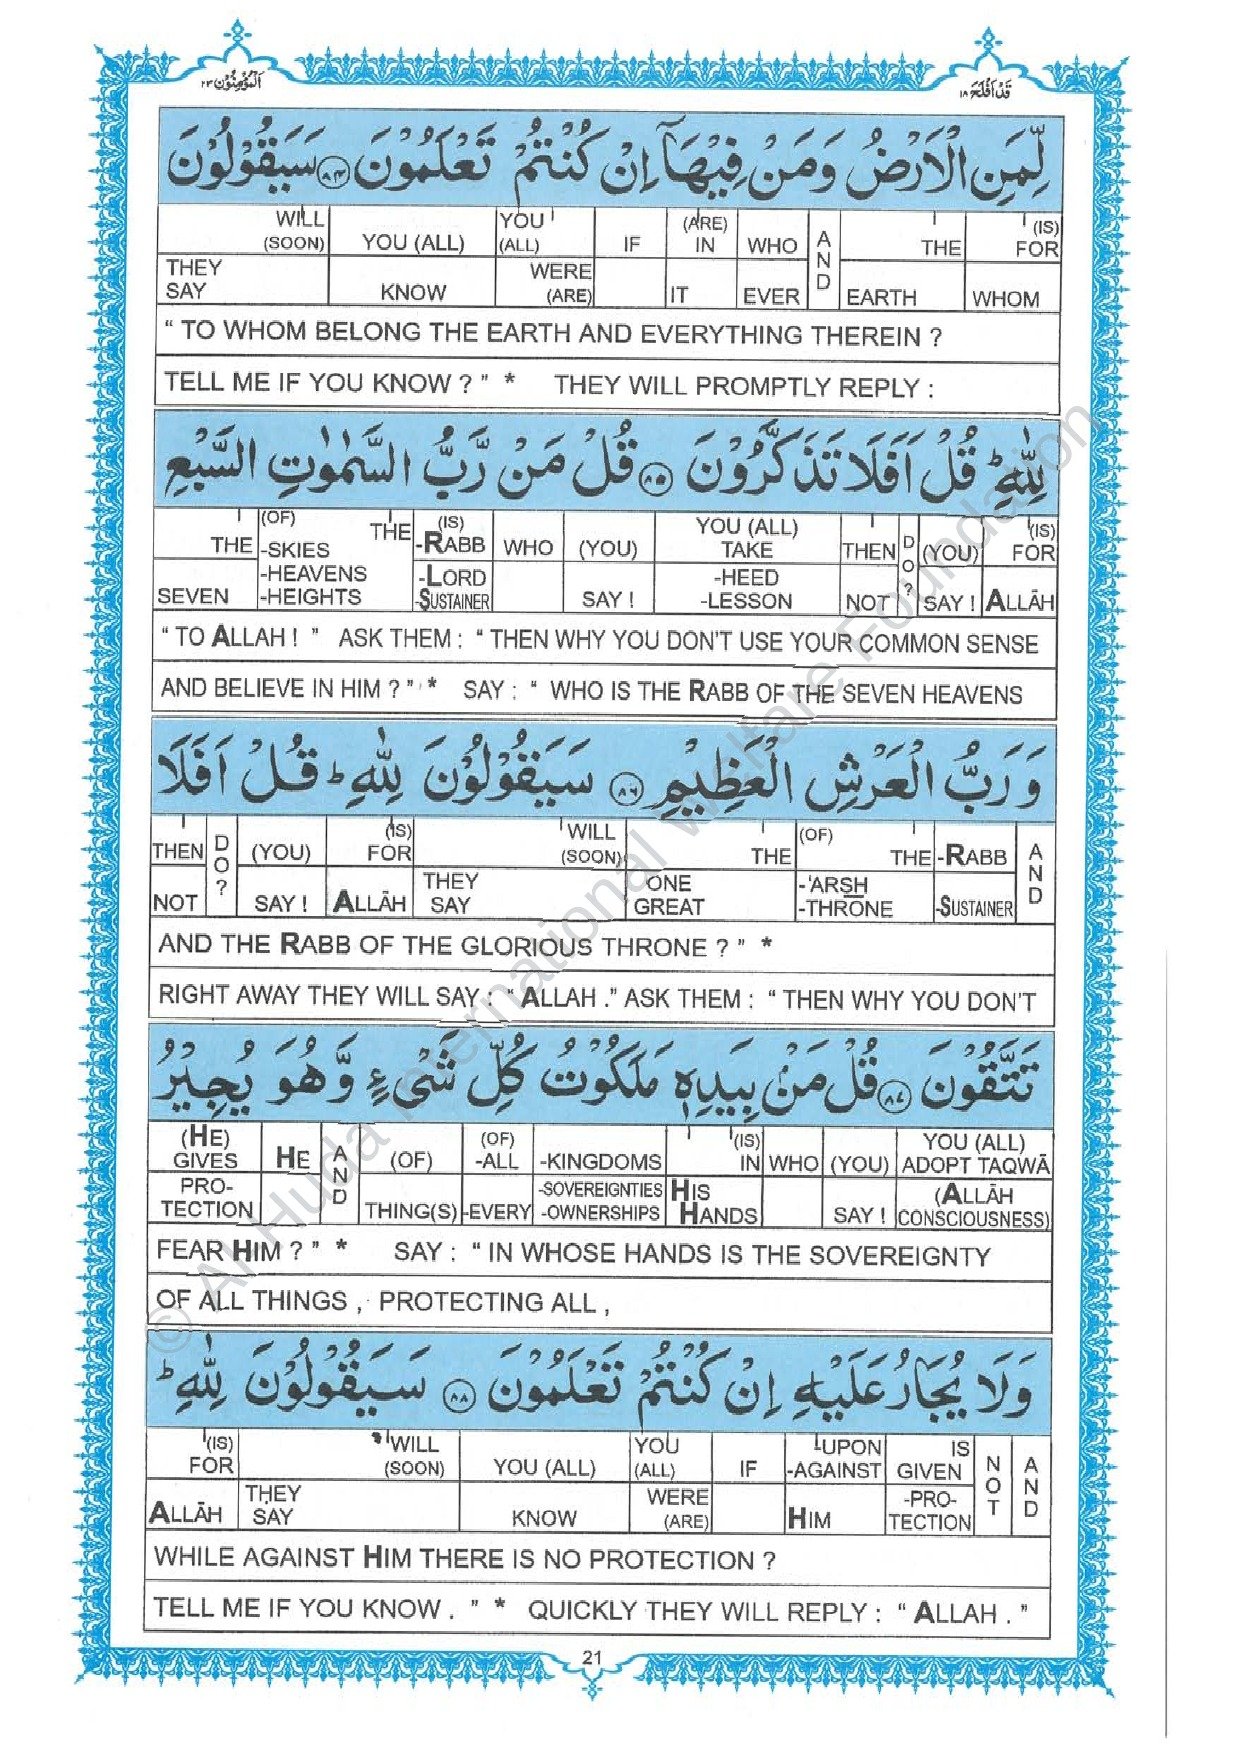 قد افلح ۱۸
المؤمنون ۲۳
لِّمَنِ الْاَرْضُ وَمَنْ فِيْهَآ اِنْ كُنْتُمْ تَعْلَمُوْنَ ۝۸۴ سَيَقُوْلُوْنَ
WILL (SOON) YOU (ALL) YOU (ALL) IF (ARE) IN WHO AND THE (IS) FOR
THEY SAY KNOW WERE (ARE) IT EVER EARTH WHOM
“ TO WHOM BELONG THE EARTH AND EVERYTHING THEREIN ?
TELL ME IF YOU KNOW ? ” * THEY WILL PROMPTLY REPLY :
لِلّٰهِ ؕ قُلْ اَفَلَا تَذَكَّرُوْنَ ۝۸۵ قُلْ مَنْ رَّبُّ السَّمٰوٰتِ السَّبْعِ
THE (OF) -SKIES -HEAVENS -HEIGHTS THE (IS) -RABB WHO (YOU) YOU (ALL) TAKE THEN DO? (YOU) (IS) FOR
SEVEN -LORD -SUSTAINER SAY ! -HEED -LESSON NOT SAY ! ALLĀH
“ TO ALLAH ! ” ASK THEM : “ THEN WHY YOU DON’T USE YOUR COMMON SENSE
AND BELIEVE IN HIM ? ” * SAY : “ WHO IS THE RABB OF THE SEVEN HEAVENS
وَرَبُّ الْعَرْشِ الْعَظِيْمِ ۝۸۶ سَيَقُوْلُوْنَ لِلّٰهِ ؕ قُلْ اَفَلَا
THEN DO? (YOU) (IS) FOR WILL (SOON) THE (OF) THE -RABB AND
NOT SAY ! ALLĀH THEY SAY ONE GREAT -'ARSH -THRONE -SUSTAINER
AND THE RABB OF THE GLORIOUS THRONE ? ” *
RIGHT AWAY THEY WILL SAY : “ ALLAH .” ASK THEM : “ THEN WHY YOU DON’T
تَتَّقُوْنَ ۝۸۷ قُلْ مَنْۢ بِيَدِهٖ مَلَكُوْتُ كُلِّ شَىْءٍ وَّهُوَ يُجِيْرُ
(HE) GIVES HE AND (OF) (OF) -ALL -KINGDOMS (IS) IN WHO (YOU) YOU (ALL) ADOPT TAQWĀ
PRO-TECTION THING(S) -EVERY -SOVEREIGNTIES -OWNERSHIPS HIS HANDS SAY ! (ALLĀH CONSCIOUSNESS)
FEAR HIM ? ” * SAY : “ IN WHOSE HANDS IS THE SOVEREIGNTY
OF ALL THINGS , PROTECTING ALL ,
وَلَا يُجَارُ عَلَيْهِ اِنْ كُنْتُمْ تَعْلَمُوْنَ ۝۸۸ سَيَقُوْلُوْنَ لِلّٰهِ ؕ
(IS) FOR WILL (SOON) YOU (ALL) YOU (ALL) IF -UPON -AGAINST IS GIVEN NOT AND
ALLĀH THEY SAY KNOW WERE (ARE) HIM -PRO-TECTION
WHILE AGAINST HIM THERE IS NO PROTECTION ?
TELL ME IF YOU KNOW . ” * QUICKLY THEY WILL REPLY : “ ALLAH . ”
21
© Al Huda International Welfare Foundation